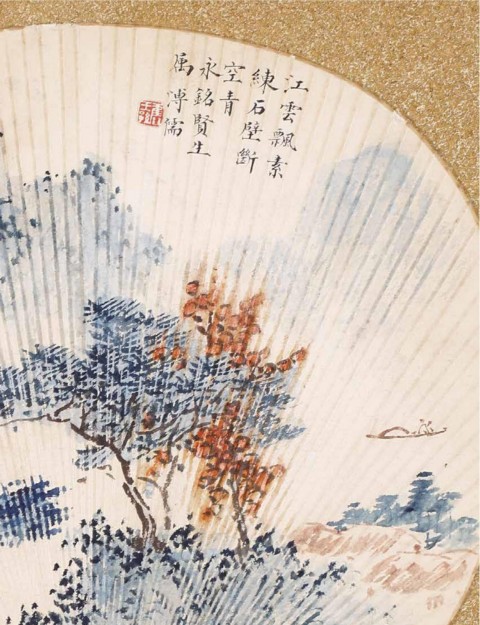 江雲飄素
練石壁斷
空青
永銘賢生
属溥儒